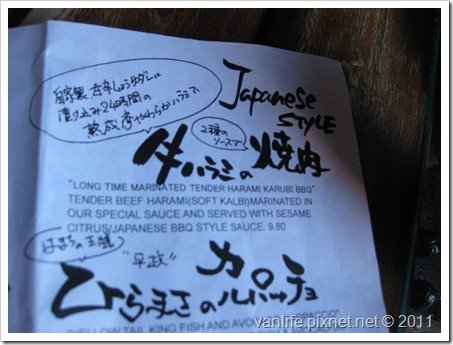 自家製 甘辛しょうゆダレに
漬け込み24時間の
熟成やわらかハラミで
Japanese
STYLE
2種の
ソースで
牛ハラミの焼肉
"LONG TIME MARINATED TENDER HARAMI KARUBI BBQ"
TENDER BEEF HARAMI(SOFT KALBI)MARINATED IN
OUR SPECIAL SAUCE AND SERVED WITH SESAME
CITRUS/JAPANESE BBQ STYLE SAUCE 9.80
はまちの王様
"平政"
ひらまさのカルパッチョ
YELLOW TAIL KING FISH AND
vanlife.pixnet.net © 2011